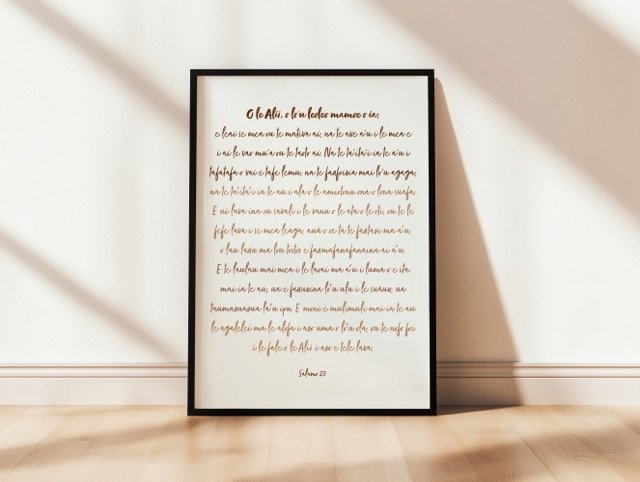 O le Alii, o lo'u leoleo mamoe o ia;
e leai se mea ou te mativa ai; na te ave a'u i le mea e
i ai le vao mu'a ou te taoto ai. Na te ta'ita'i ia te a'u i
tafatafa o vai e tafe lemu; na te faafoisia mai lo'u agaga;
na te ta'ita'i ia te au i ala o le amiotonu ona o lona suafa;
E ui lava ina ou savali i le vanu o le ata o le oti, ou te le
fefe lava i se mea leaga; aua o oe ta te faatasi ma a'u;
o lau laau ma lou tootoo e faamafanafanaina ai a'u.
E te laulau mai mea i le lavai ma a'u i luma o e ita
mai ia te au; ua e faauuina lo'u ulu i le suauu; ua
taumasuasua la'u ipu. E moni e mulimuli mai ia te au
le agalelei ma le alofa i aso uma o lo'u ola; ou te nofo foi
i le fale o le Alii i aso e tele lava.
Salamo 23